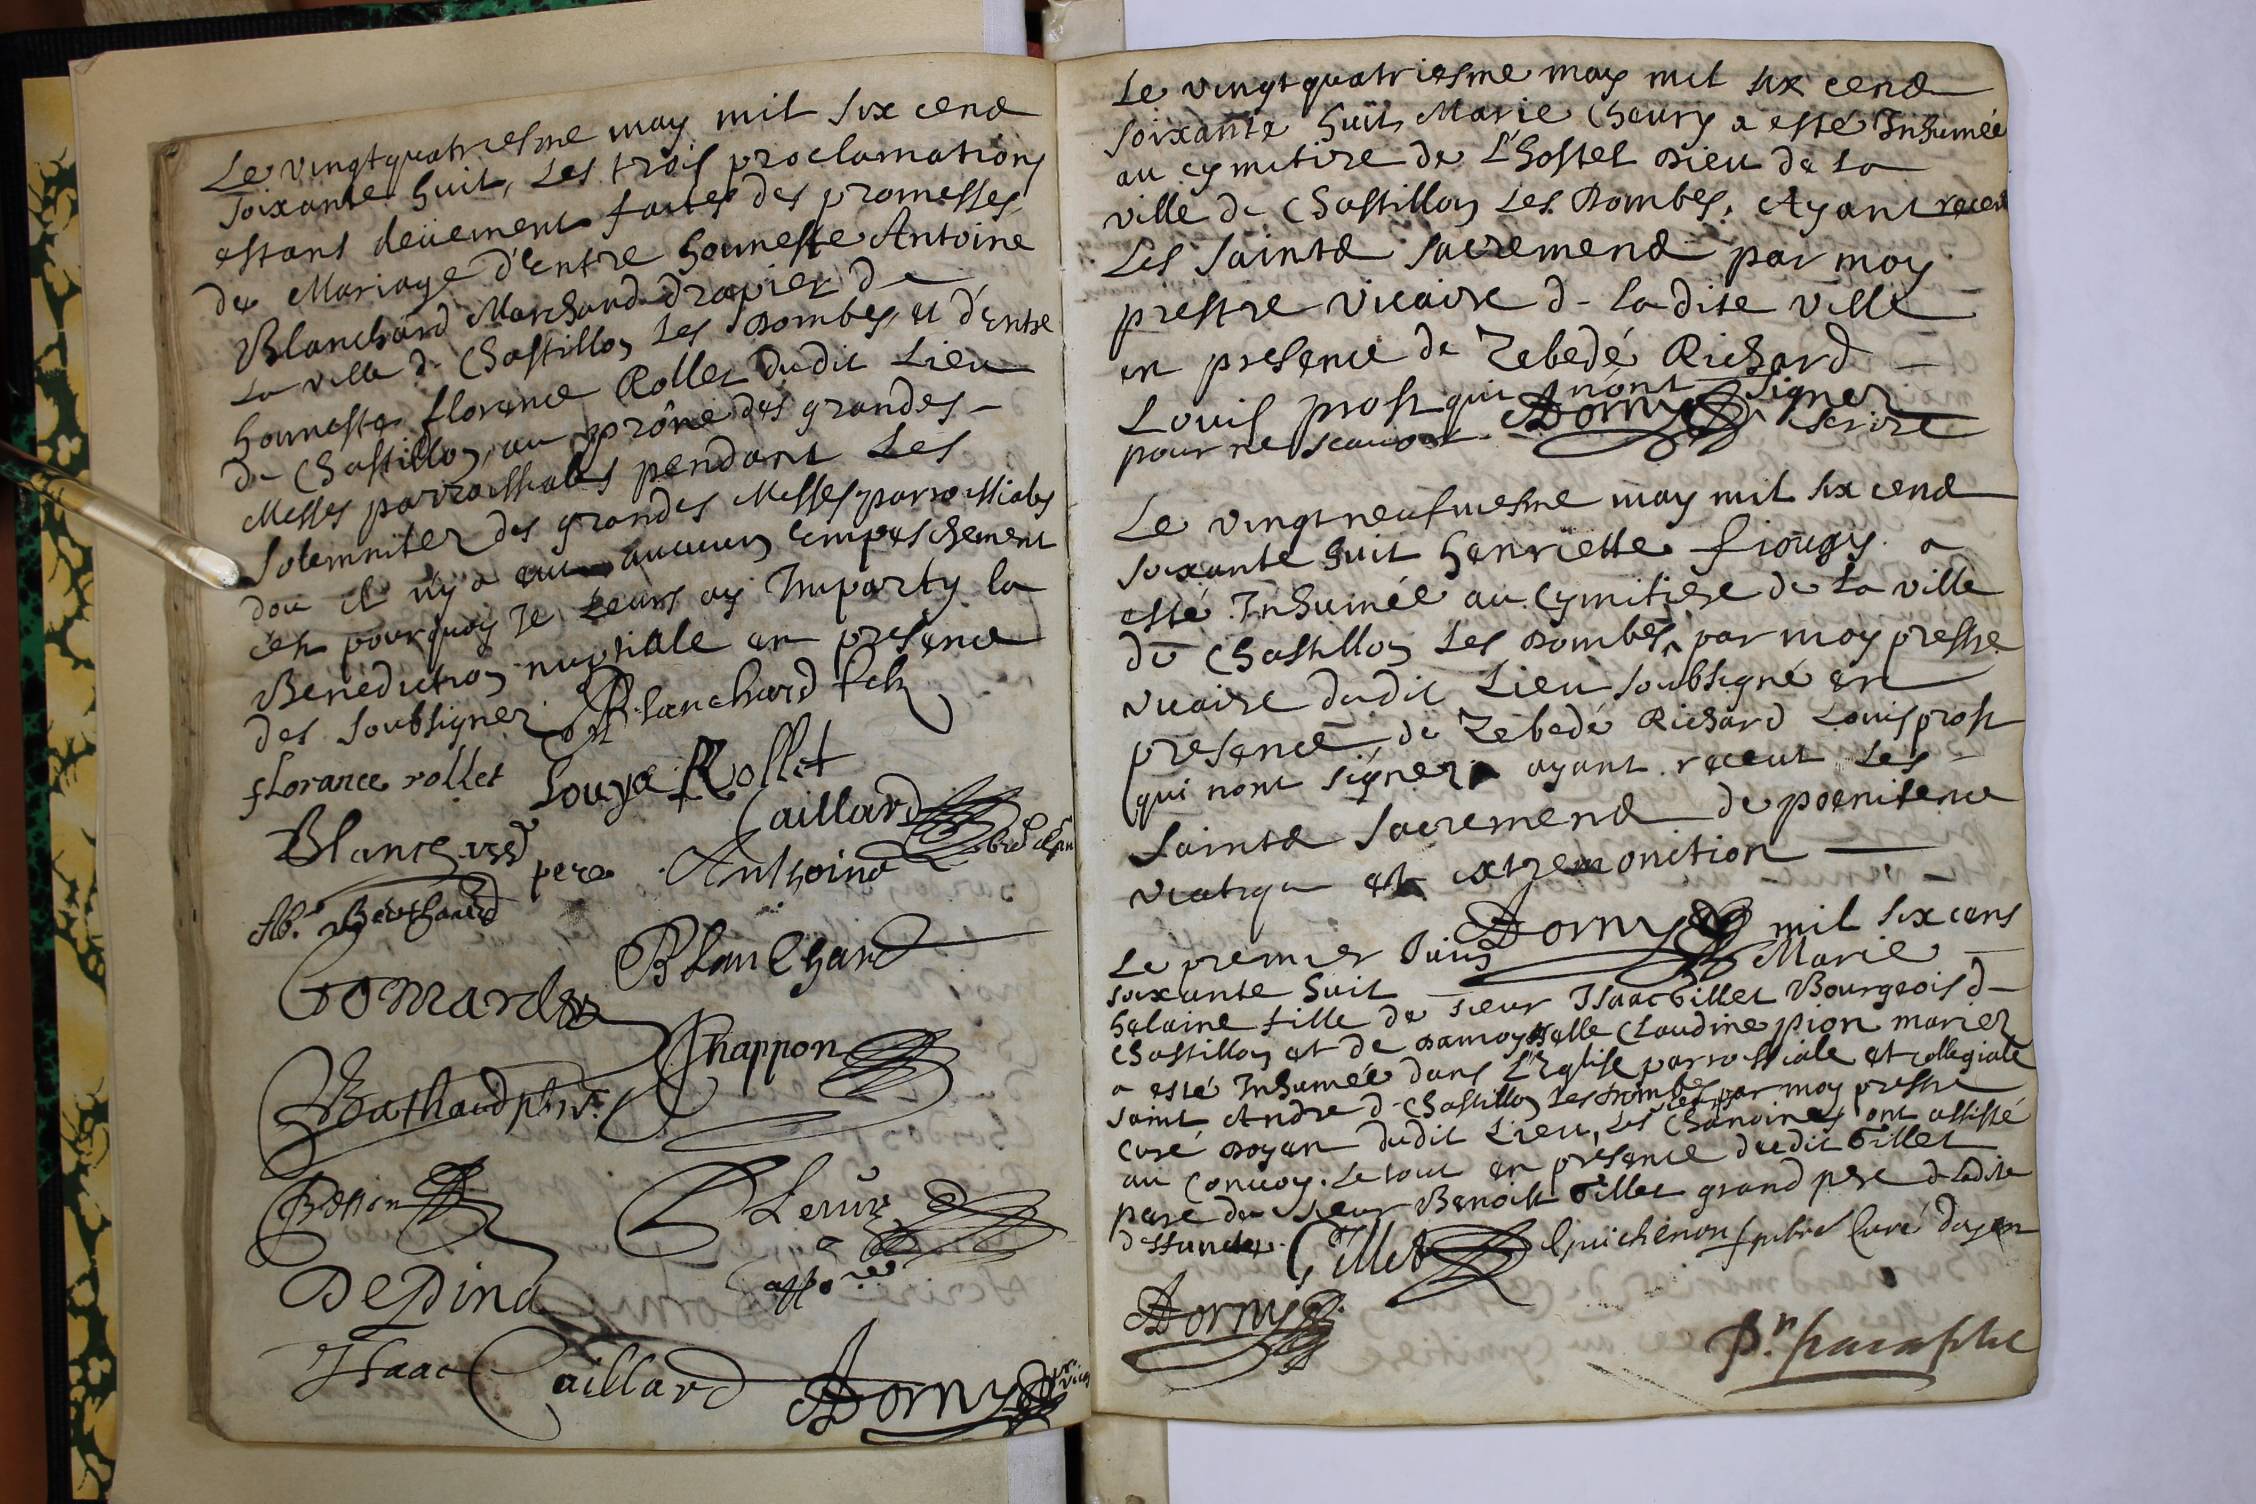 Le vingtquatriesme may mil six cend
soixante huit, Les trois proclamations
estans deüement faites des promesses
de Mariage d'Entre honneste Antoine
Blanchard Marchand drapier de
La ville de Chastillon Les Dombes, et d'entre
honneste florence Rollet dudit Lieu
de Chastillon, au prône des grandes
Messes parrossiales pendant Les
solemnitez des grandes Messes parrossiales
dou il n'y a eut aucun Empeschement
c'est pourquoy Je Leurs ay Imparty la
Benediction nuptiale en presence
des soubsignez Blanchard
florance rollet Rollet
Caillard
Blanchard pere Anthoine
Blanchard
Chappon
Depina
Isaac Caillard Dorny
Le vingtquatriesme may mil six cend
soixante huit, Marie Cheury a esté Inhumée
au cymitire de L'hostel Dieu de La
ville de Chastillon Les Dombes, Ayant receu
Les saintd sacremend par moy
prestre vicaire d- Ladite ville
en presence de Zebedé Richard
Louis prost qui n'ont signer
pour ne scauoir Dorny Escrire
Le vingtneufuiesme may mil six cend
soixante huit henriette a
esté Inhumée au Cymitiere de La ville
de Chastillon Les Dombes, par moy prestre
vicaire dudit Lieu soubsigné en
presence de Zebedé Richard Louis prost
qui nont signer ayant receut Les
saintd sacremend de poenitence
viatique et extremonition
Dorny
Le premier Juin mil six cens
soixante huit Marie
helaine fille de sieur Isaac Gillet Bourgeois d-
Chastillon et de damoyselle Claudine pion mariez
a esté Inhumée dans L'Eglise parrossiale et collegiale
saint Andre d- Chastillon Les Dombes, par moy prestre
curé doyen dudit Lieu, Les Chanoines ont assisté
au Conuoy. Le tout en presence dudit Gillet
pere du sieur Benoist Gillet grand pere d- Ladite
deffuncte. Gillet Guichenon Curé doyen
Dorny
paraphe